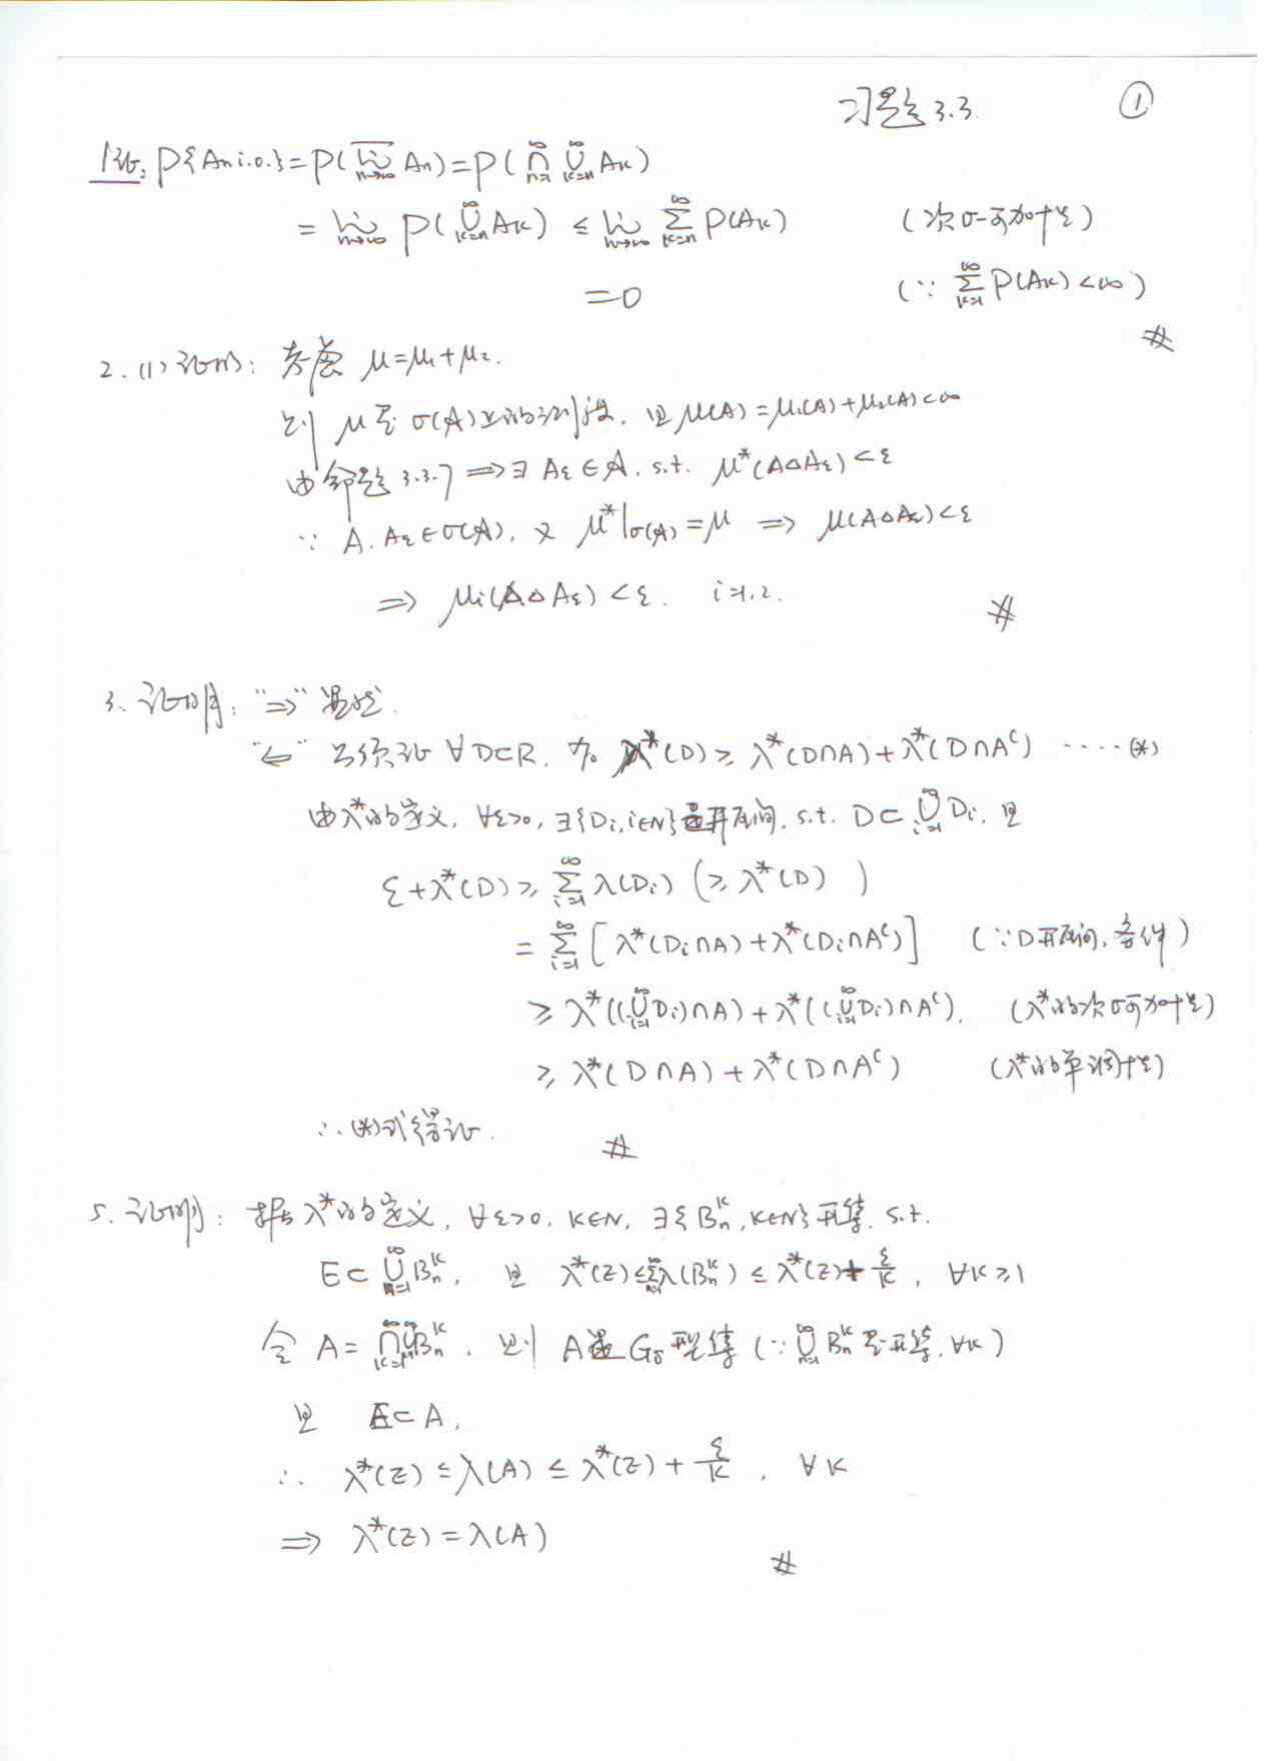 习题3.3. ①
1证: P{An i.o.}=P(lim̅_{n→∞} An)=P(∩_{n=1}^∞ ∪_{k=n}^∞ Ak)
= lim_{n→∞} P(∪_{k=n}^∞ Ak) ≤ lim_{n→∞} Σ_{k=n}^∞ P(Ak) (次σ-可加性)
=0 (∵ Σ_{k=1}^∞ P(Ak)<∞)
#
2. (1) 证明: 考虑 μ=μ₁+μ₂.
则 μ是 σ(A)上的测度. 且 μ(A)=μ₁(A)+μ₂(A)<∞
由命题3.3.7 ⟹ ∃ Aε∈A. s.t. μ*(A△Aε)<ε
∵ A. Aε∈σ(A), 又 μ*|σ(A)=μ ⟹ μ(A△Aε)<ε
⟹ μi(A△Aε)<ε. i=1.2. #
3. 证明: "⇒" 显然.
"⇐" 只须证 ∀D⊂R. 有 λ*(D)≥λ*(D∩A)+λ*(D∩A^c) ····(*)
由λ*的定义, ∀ε>0, ∃{Di,i∈N}是开区间. s.t. D⊂∪_{i=1}^∞ Di. 且
ε+λ*(D)≥ Σ_{i=1}^∞ λ(Di) (≥λ*(D) )
= Σ_{i=1}^∞ [λ*(Di∩A)+λ*(Di∩A^c)] (∵D开区间, 条件)
≥ λ*((∪_{i=1}^∞ Di)∩A)+λ*((∪_{i=1}^∞ Di)∩A^c). (λ*的次σ可加性)
≥ λ*(D∩A)+λ*(D∩A^c) (λ*的单调性)
∴(*)式得证. #
5. 证明: 据λ*的定义, ∀ε>0, k∈N, ∃{B_n^k, k∈N}开集. s.t.
E⊂∪_{n=1}^∞ B_n^k. 且 λ*(Z)≤Σ_{n=1}^∞ λ(B_n^k) ≤ λ*(Z)+ε/k, ∀k≥1
令 A=∩_{k=1}^∞ ∪_{n=1}^∞ B_n^k. 则 A是Gδ型集 (∵∪_{n=1}^∞ B_n^k 是开集, ∀k)
且 E⊂A.
∴ λ*(Z)≤λ(A)≤λ*(Z)+ε/k, ∀k
⟹ λ*(Z)=λ(A) #